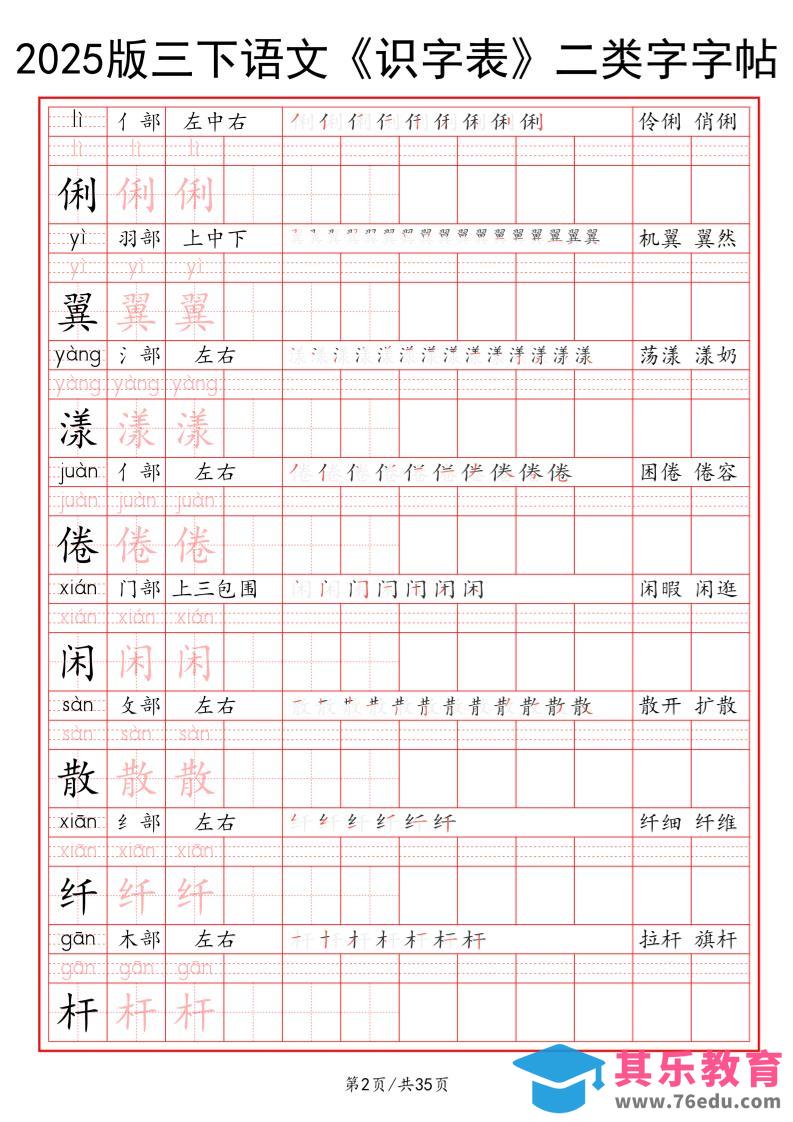 2025版三下语文《识字表》二类字字帖
lì 亻部 左中右 伶俐 俏俐
lì lì lì
俐 俐 俐
yì 羽部 上中下 机翼 翼然
yì yì yì
翼 翼 翼
yàng 氵部 左右 荡漾 漾奶
yàng yàng yàng
漾 漾 漾
juàn 亻部 左右 困倦 倦容
juàn juàn juàn
倦 倦 倦
xián 门部 上三包围 闲暇 闲逛
xián xián xián
闲 闲 闲
sàn 攵部 左右 散开 扩散
sàn sàn sàn
散 散 散
xiān 纟部 左右 纤细 纤维
xiān xiān xiān
纤 纤 纤
gān 木部 左右 拉杆 旗杆
gān gān gān
杆 杆 杆
第2页/共35页
其乐教育
www.76edu.com